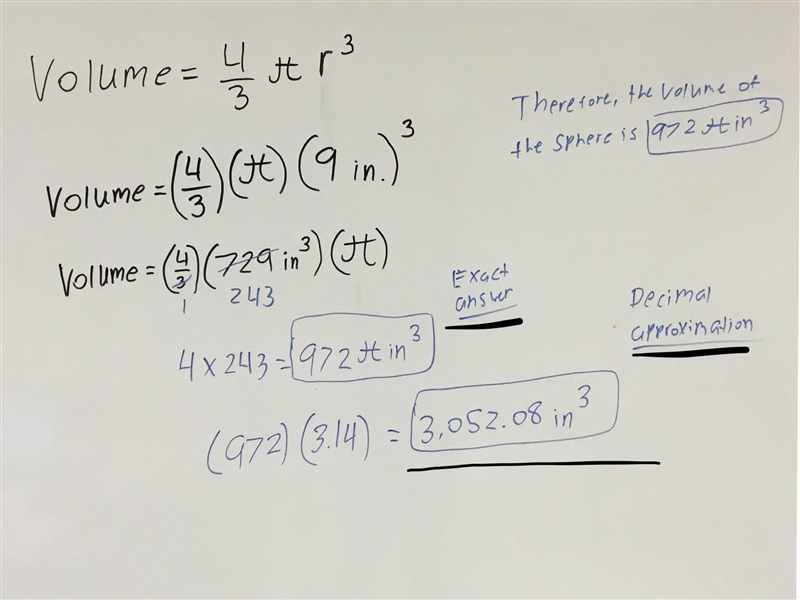 Volume = 4/3 π r³
Therefore, the volume of
the sphere is 972 π in³
Volume = (4/3)(π)(9 in.)³
Volume = (4/3)(729 in³)(π)
1 243
Exact
answer
Decimal
approximation
4 × 243 = 972 π in³
(972)(3.14) = 3,052.08 in³